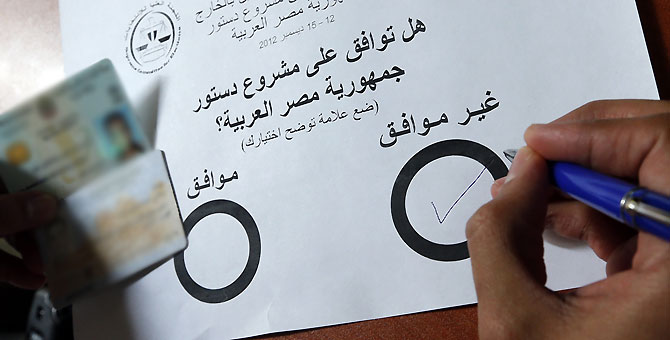 بالخارج
على مشروع دستور
جمهورية مصر العربية
12 – 15 ديسمبر 2012
هل توافق على مشروع دستور
جمهورية مصر العربية؟
(ضع علامة توضح اختيارك)
غير موافق
موافق